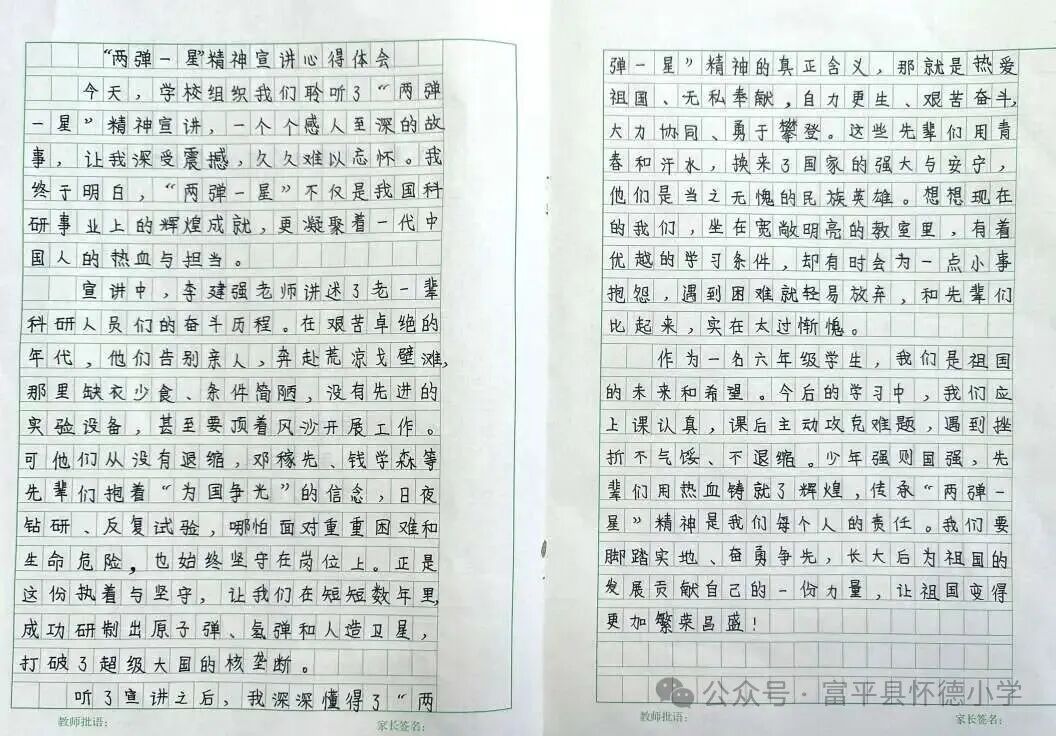 “两弹一星”精神宣讲心得体会
今天，学校组织我们聆听了“两弹
一星”精神宣讲，一个个感人至深的故
事，让我深受震撼，久久难以忘怀。我
终于明白，“两弹一星”不仅是我国科
研事业上的辉煌成就，更凝聚着一代中
国人的热血与担当。
宣讲中，李建强老师讲述了老一辈
科研人员们的奋斗历程。在艰苦卓绝的
年代，他们告别亲人，奔赴荒凉戈壁滩，
那里缺衣少食、条件简陋，没有先进的
实验设备，甚至要顶着风沙开展工作。
可他们从没有退缩，邓稼先、钱学森等
先辈们抱着“为国争光”的信念，日夜
钻研、反复试验，哪怕面对重重困难和
生命危险，也始终坚守在岗位上。正是
这份执着与坚守，让我们在短短数年里，
成功研制出原子弹、氢弹和人造卫星，
打破了超级大国的核垄断。
听了宣讲之后，我深深懂得了“两
教师批语：
家长签名：
弹一星”精神的真正含义，那就是热爱
祖国、无私奉献，自力更生、艰苦奋斗，
大力协同、勇于攀登。这些先辈们用青
春和汗水，换来了国家的强大与安宁，
他们是当之无愧的民族英雄。想想现在
的我们，坐在宽敞明亮的教室里，有着
优越的学习条件，却有时会为一点小事
抱怨，遇到困难就轻易放弃，和先辈们
比起来，实在太过惭愧。
作为一名六年级学生，我们是祖国
的未来和希望。今后的学习中，我们应
上课认真，课后主动攻克难题，遇到挫
折不气馁、不退缩。少年强则国强，先
辈们用热血铸就了辉煌，传承“两弹一
星”精神是我们每个人的责任。我们要
脚踏实地、奋勇争先，长大后为祖国的
发展贡献自己的一份力量，让祖国变得
更加繁荣昌盛！
公众号·富平县怀德小学
教师批语：
家长签名：